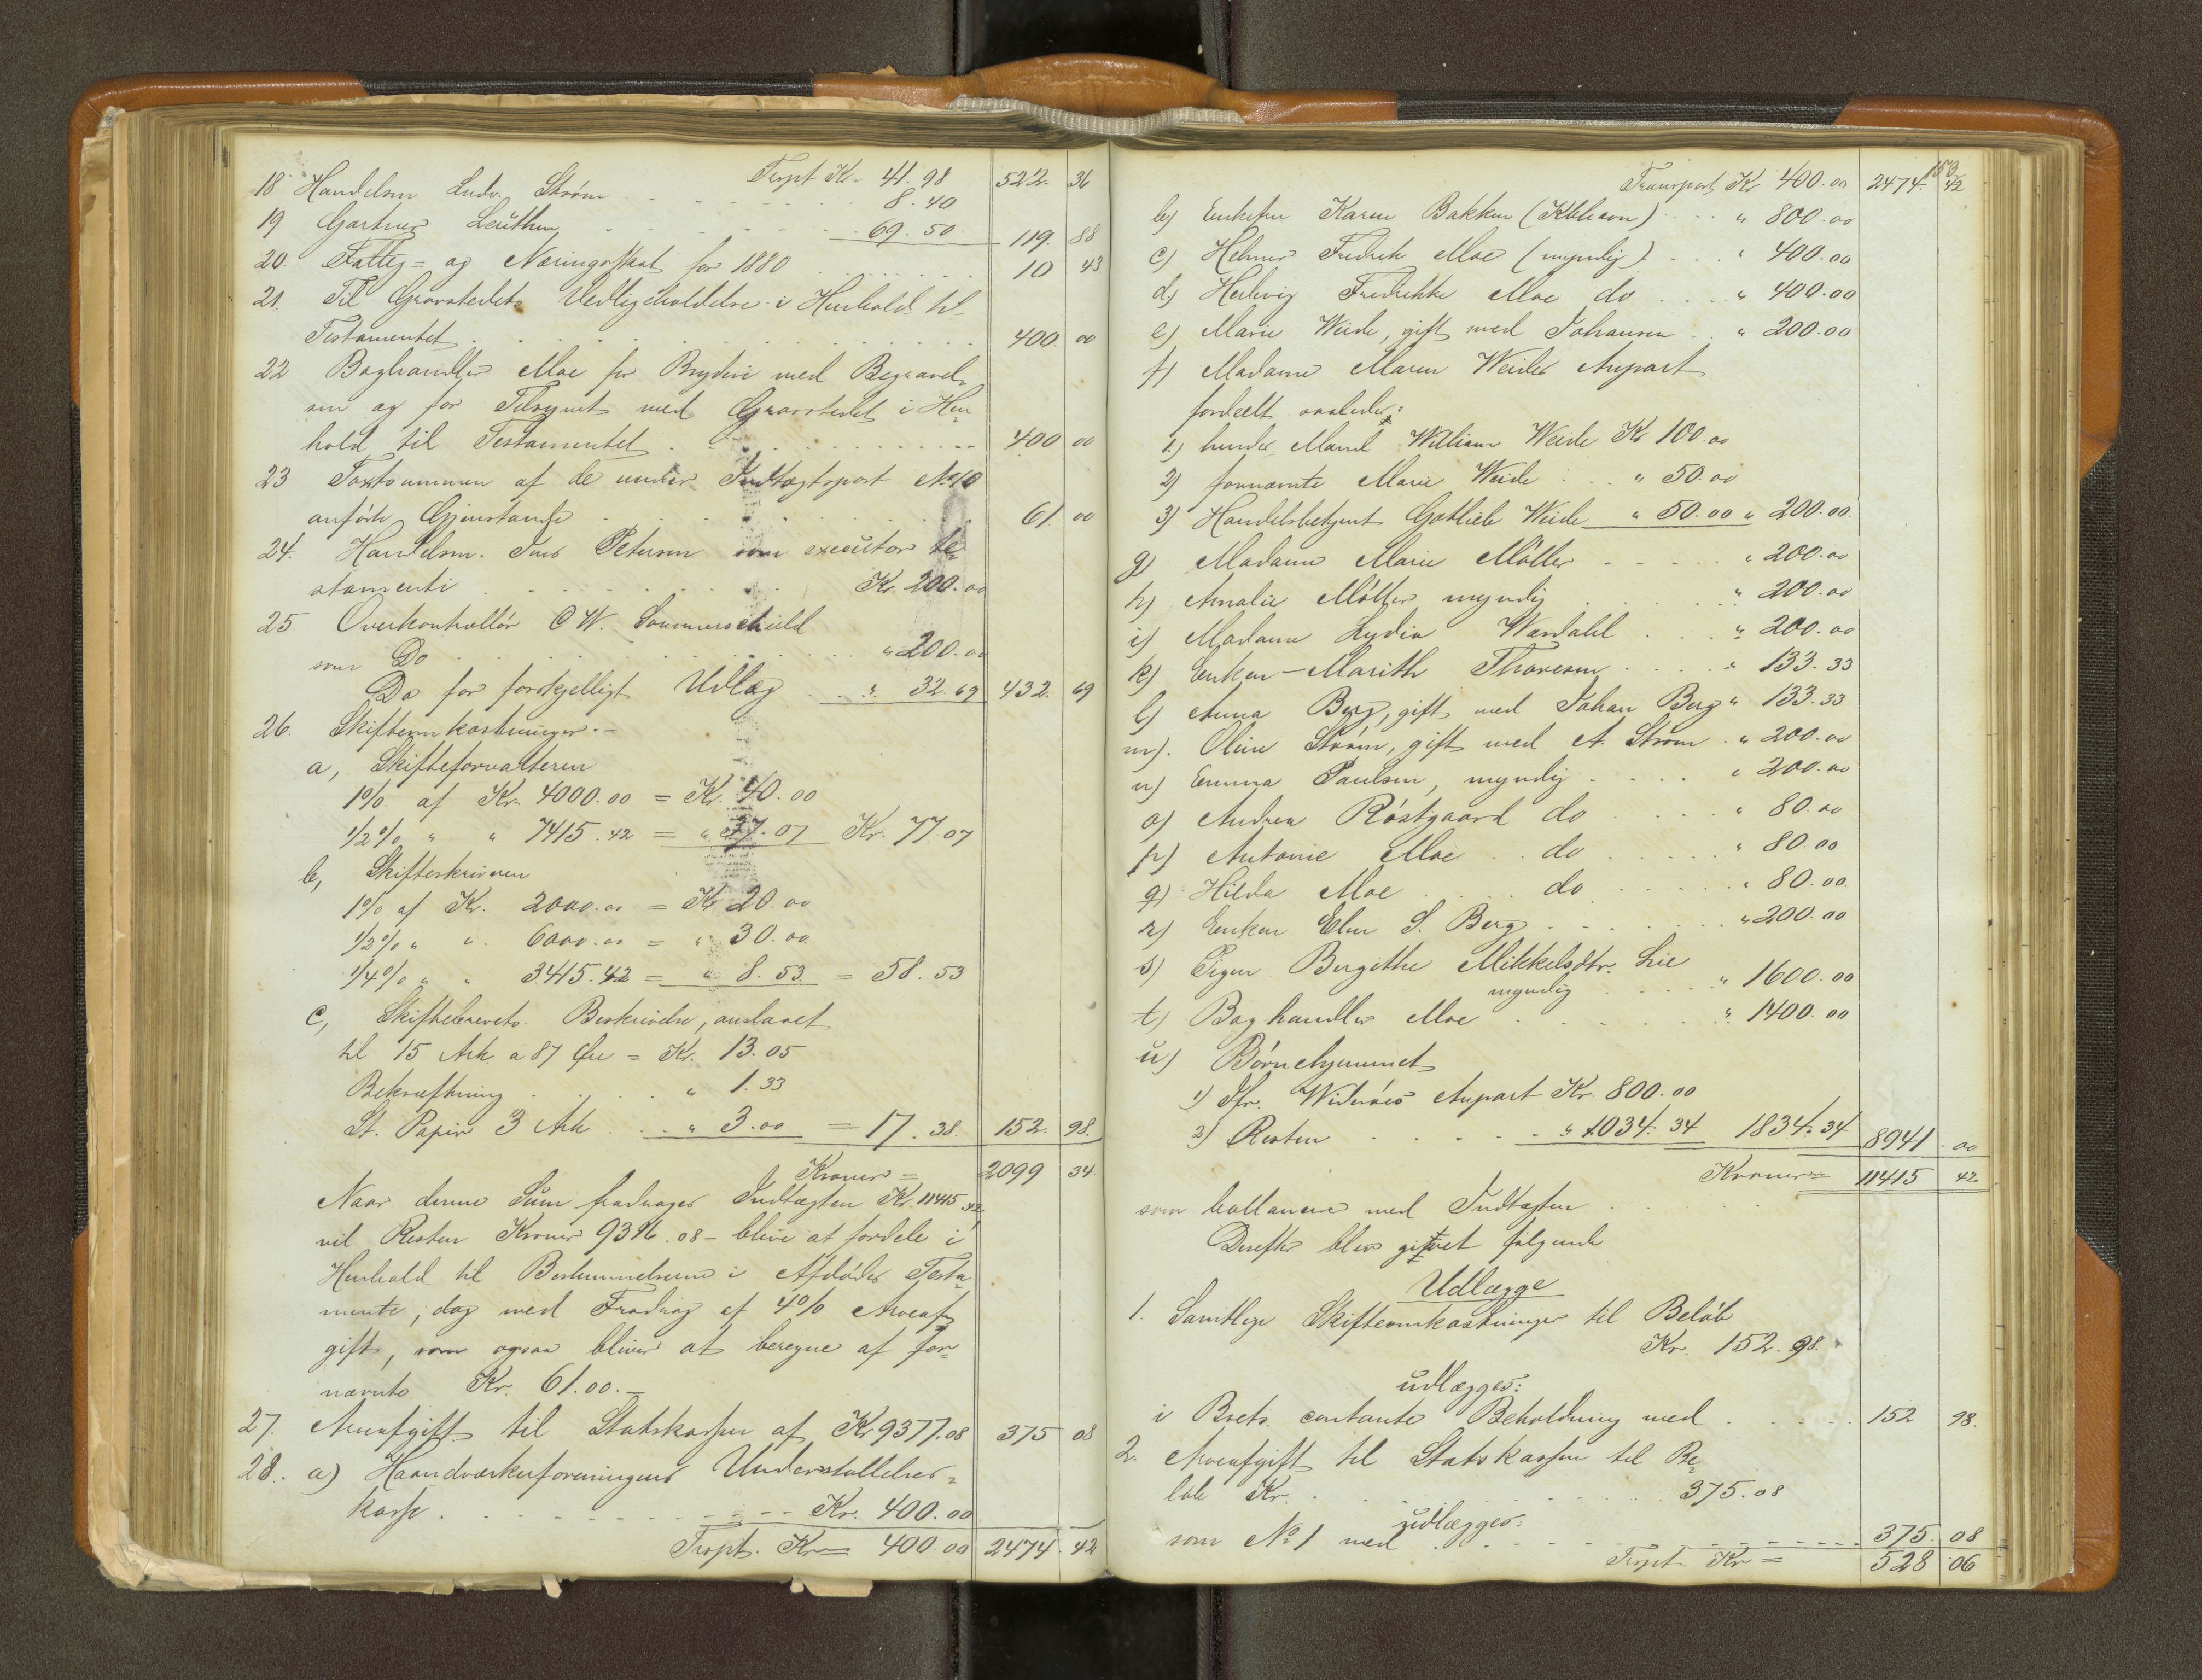 Trspt Kr. 41.98 522. 36
18 Handelsm Ludv. Strøm 8.40
19 Gartner Leuthen 69.50 119. 88
20 Fattig= og Næringsskat for 1880 10 43
21. Til Gravstedets Vedligeholdelse i Henhold til
Testamentet 400. 00
22 Boghandler Moe for Bryderi med Begravel=
sen og for Tilsynet med Gravstedet i Hen=
hold til Testamentet 400 00
23 Taxtsummen af de under Indtægtspost No 10
anførte Gjenstande 61 00
24. Handelsm. Jens Petersen som executor te=
stamenti Kr. 200.00
25 Overkontrollør C W. Sommerschield
som Do " 200.00
Do for forskjelligt Udlæg " 32.69 432. 69
26. Skifteomkostninger.-
a, Skifteforvalteren
1% af Kr. 4000.00 = Kr. 40.00
1/2% " " 7415.42 = " 37.07 Kr. 77.07
b, Skifteskriveren
1% af Kr. 2000.00 = Kr 20.00
1/2% " " 6000.00 = " 30.00
1/4% " " 3415.42 = " 8.53 = 58.53
c, Skiftebrevets Beskrivelse, anslaaet
til 15 Ark a 87 Øre = Kr. 13.05
Bekræftning " 1.33
St. Papir 3 Ark " 3.00 = 17.38. 152. 98.
Kroner = 2099 34
Naar denne Sum fradrages Indtægten Kr. 11415.42
vil Resten Kroner 9316.08 - blive at fordele i
Henhold til Bestemmelserne i Afdødes Testa=
mente, dog med Fradrag af 4% Arveaf=
gift, som ogsaa bliver at beregne af for=
nævnte Kr. 61.00.-
27. Arveafgift til Statskassen af Kr 9377.08 375 08
28. a) Haandværkerforeningens Understøttelses=
kasse Kr. 400.00
Trspt. Kr = 400.00 2474. 42
153
Transport Kr 400.00 2474. 42
b) Enkefru Karen Bakken " 800.00
c) Helmer Fredrik Moe (myndig) " 400.00
d) Hedevig Fredrikke Moe do " 400.00
e) Marie Weide, gift med Johansen " 200.00
f) Madame Maren Weides Anpart
fordeelt saaledes:
1) hendes Mand William Weide Kr 100.00
2) fornævnte Marie Weide " 50.00
3) Handelsbetjent Gotlieb Weide " 50.00 " 200.00.
g) Madame Marie Møller " 200.00
h) Amalie Møller myndig " 200.00
i) Madame Lydia Wardahl " 200.00
k) Enken Marith Thoresen " 133.33
l) Anna Berg, gift med Johan Berg " 133.33
m). Oline Strøm, gift med A. Strøm " 200.00
n) Emma Paulsen, myndig " 200.00
o) Andrea Røstgaard do " 80.00
p) Antonie Moe do " 80.00
q) Hilda Moe do " 80.00
r) Enken Elen S. Berg " 200.00
s) Pigen Bergithe Mikkelsdtr. Lie
myndig " 1600.00
t) Boghandler Moe " 1400.00
u) Børnehjemmet
1) Jfr. Widerøes Anpart Kr. 800.00
2) Resten " 1034.34 1834.34 8941. 00
Kroner = 11415 42
som ballancere med Indtægten
Derefter blev gjort følgende
Udlægge
1. Samtlige Skifteomkostninger til Beløb
Kr. 152.98.
udlægges:
i Boets contante Beholdning med 152 98.
2. Arveafgift til Statskassen til Be=
løb Kr. 375.08
udlægges:
som No 1 med 375. 08
Trspt Kr = 528 06